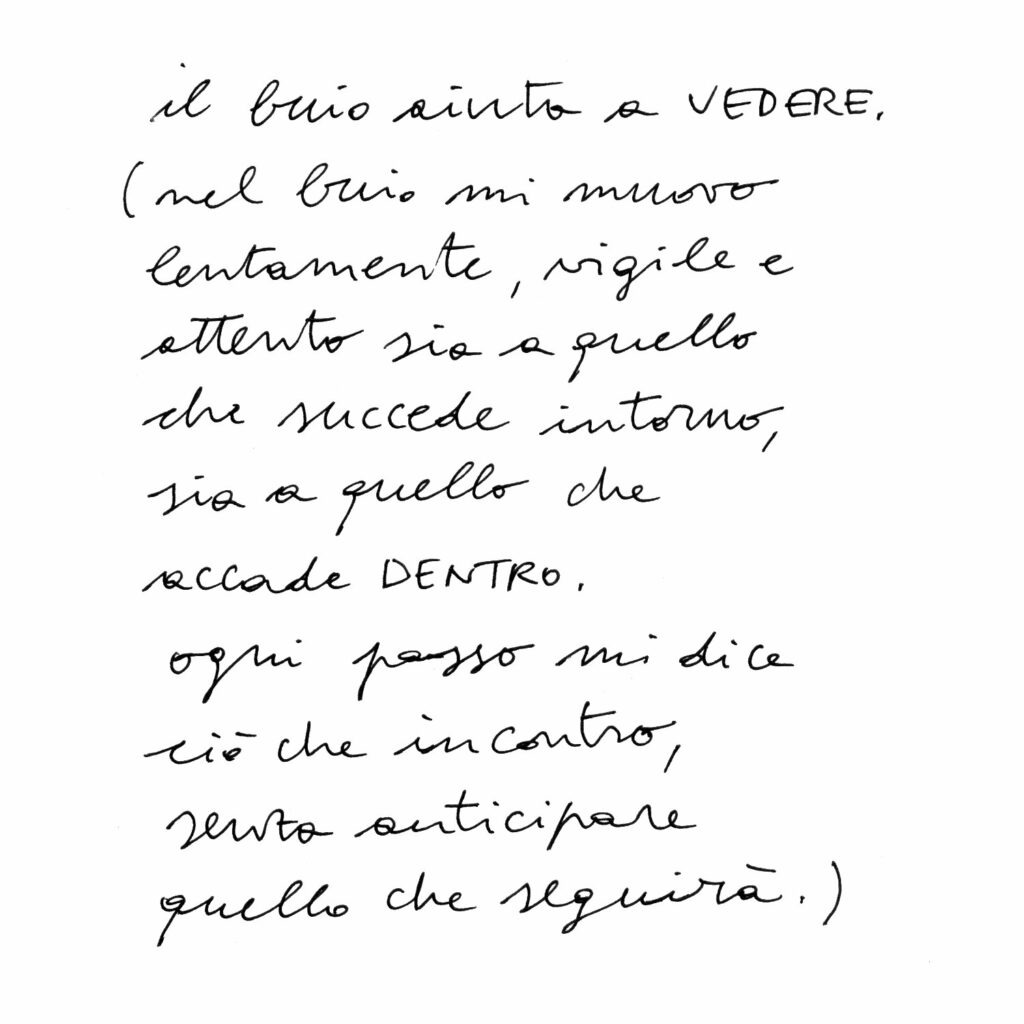 il buio aiuta a VEDERE.
(nel buio mi muovo
lentamente, vigile e
attento sia a quello
che succede intorno,
sia a quello che
accade DENTRO.
ogni passo mi dice
ciò che incontro,
senza anticipare
quello che seguirà.)